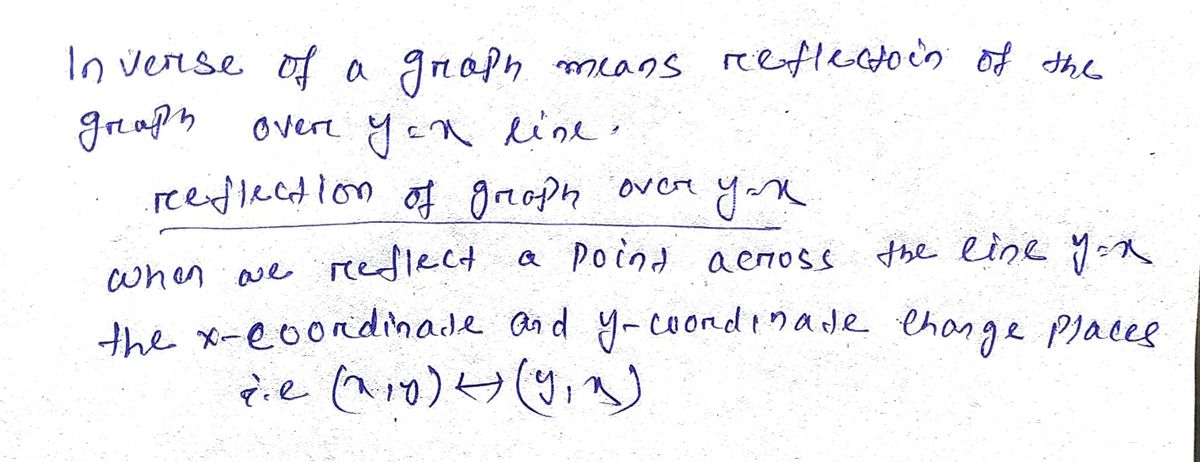 Inverse of a graph means reflectoin of the
graph over y=x line.
reflection of graph over y=x
when we reflect a point across the line y=x
the x-coordinate and y-coordinate change places
i.e (x,y) ↔ (y,x)